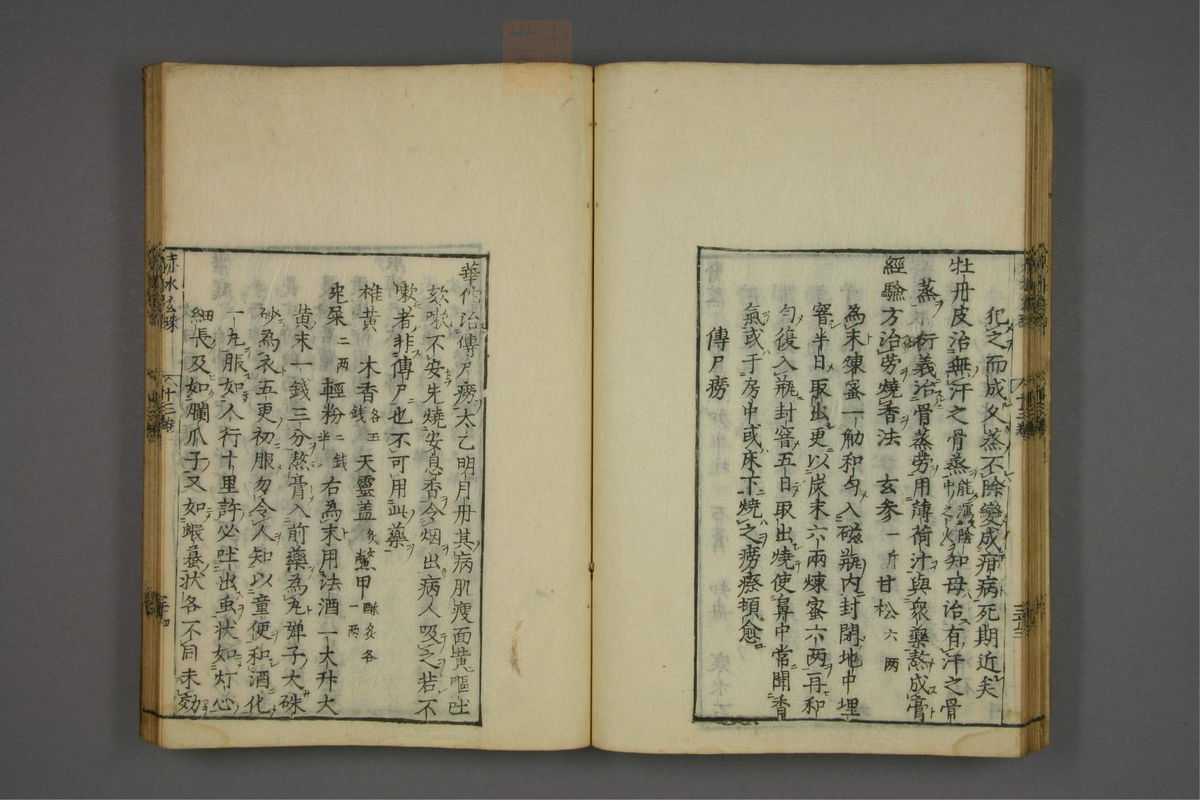 犯之而成久蒸不除變成疳病死期近矣
牡丹皮治無汗之骨蒸能瀉陰中之火知母治有汗之骨
蒸 衍義治骨蒸勞用薄荷汁與衆藥熬成膏
經驗方治勞燒香法 玄参一斤甘松六两
為末煉蜜一觔和勻入磁瓶内封閉地中埋
窨半日取出更以炭末六兩煉蜜六两再和
勻復入瓶封窨五日取出燒使鼻中常聞香
氣或于房中或床下燒之癆瘵頓愈
傳尸癆
華佗治傳尸癆太乙明月丹其病肌瘦面黄嘔吐
欬嗽不安先燒安息香令烟出病人吸之若不
嗽者非傳尸也不可用此藥
雄黄 木香各五錢天靈盖炙鱉甲酥炙各一两
兎屎二两輕粉二錢半右為末用法酒一大升大
黄末一錢三分熬膏入前藥為丸弹子大硃
砂為衣五更初服勿令人知以童便和酒化
一丸服如人行十里許必吐出虫状如灯心
細長及如爛爪子又如蝦蟇状各不同未効
赤水玄珠
十二卷
三十四
十二卷
三十三